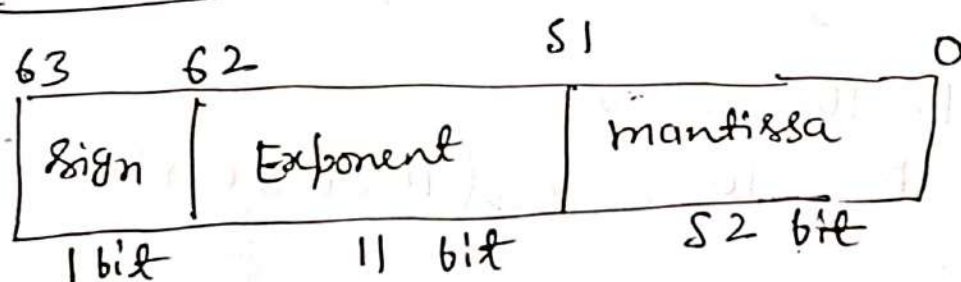 63 62 51 0
Sign Exponent mantissa
1 bit 11 bit 52 bit